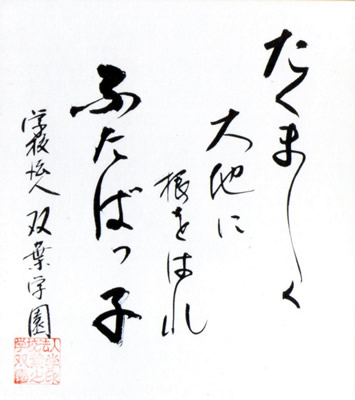 たくましく
大地に
根をはれ
ふたばっ子
学校法人 双葉学園